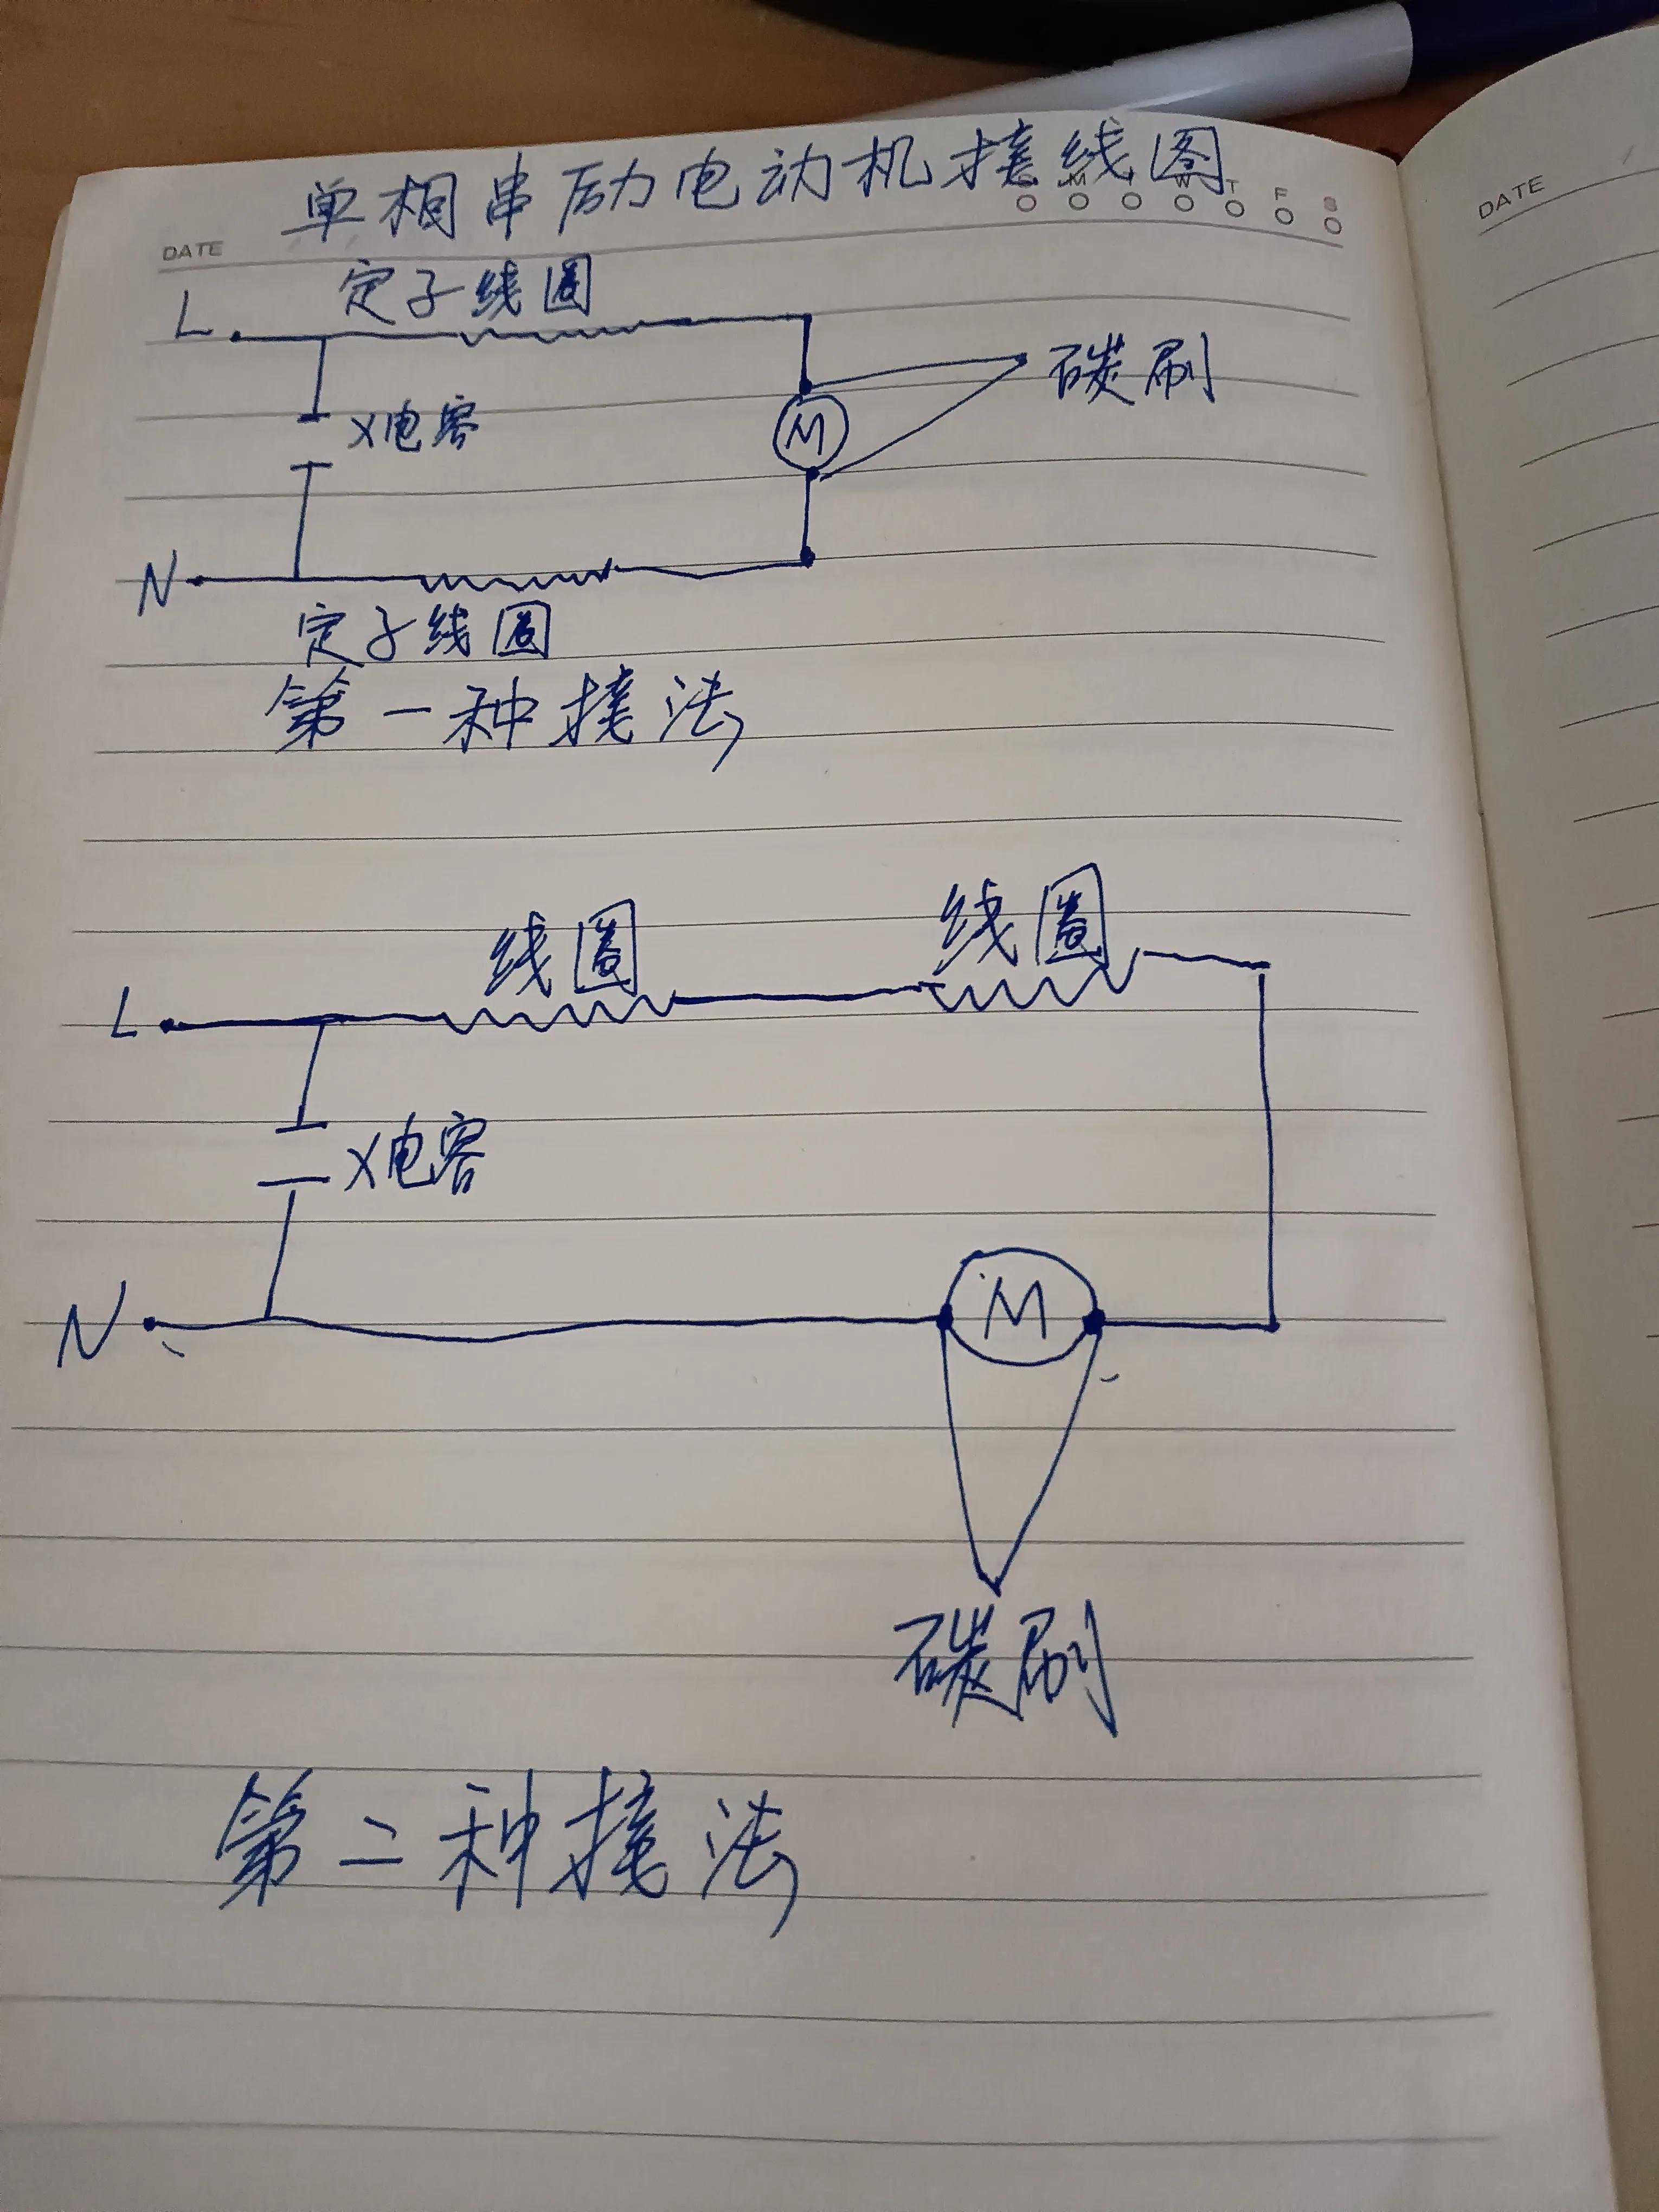 单相串励电动机接线图
DATE
M T W T F S
DATE
定子线圈
L
碳刷
X电容
M
N
定子线圈
第一种接法
线圈 线圈
L
X电容
N
M
碳刷
第二种接法